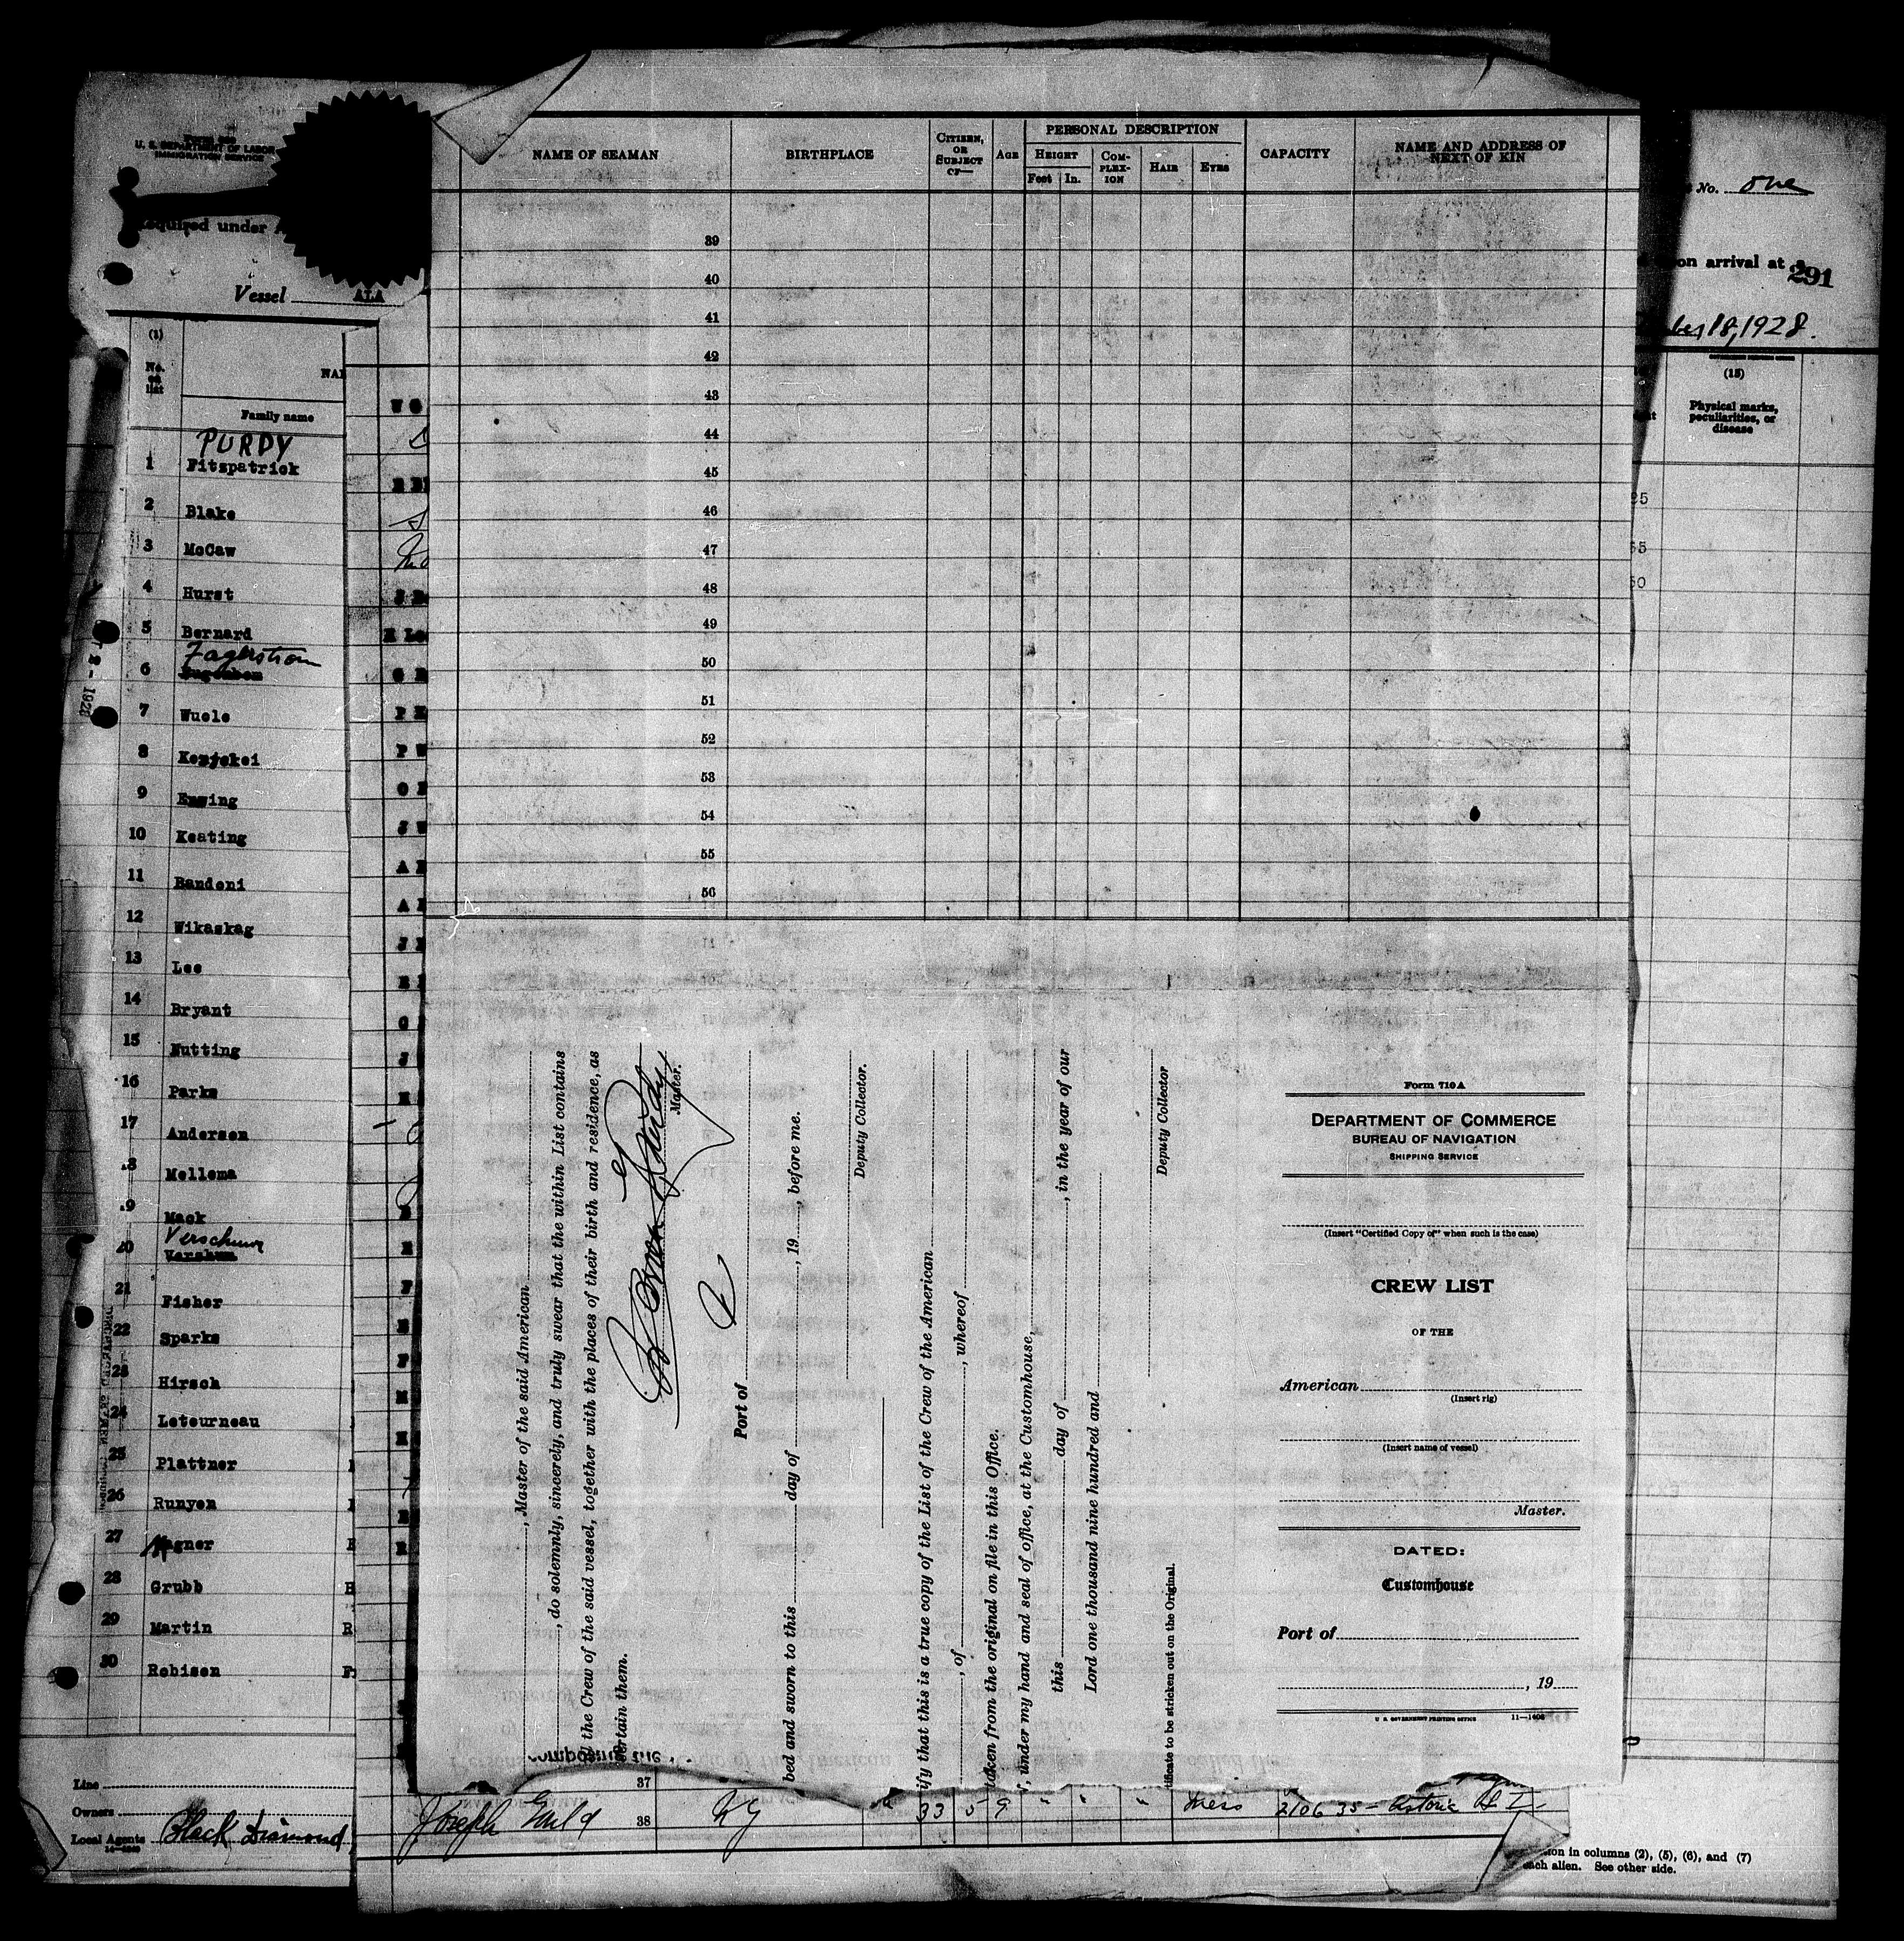 U. S. DEPARTMENT OF LABOR
IMMIGRATION SERVICE
Required under
Vessel ALA
(1)
No. on list
NAM
Family name
PURDY
1 Fitzpatrick
2 Blake
3 McCaw
4 Hurst
5 Bernard
Fagerstrom
6
7 Wuele
8
9
10 Keating
11 Bandoni
12 Wikaskag
13 Lee
14 Bryant
15 Nutting
16 Parks
17 Andersen
18 Mellema
19 Mack
20
21 Fisher
22 Sparks
23 Hirsch
24 Letourneau
25 Plattner
26 Runyon
27 Wagner
28 Grubb
29 Martin
30 Robison
Line
Owners
Local Agents Black Diamond
NAME OF SEAMAN
BIRTHPLACE
CITIZEN, OR SUBJECT OF—
AGE
PERSONAL DESCRIPTION
HEIGHT
Feet In.
COMPLEXION
HAIR
EYES
CAPACITY
NAME AND ADDRESS OF NEXT OF KIN
39
40
41
42
43
44
45
46
47
48
49
50
51
52
53
54
55
56
, Master of the said American
, do solemnly, sincerely, and truly swear that the within List contains
the Crew of the said vessel, together with the places of their birth and residence, as
ertain them.
Master.
Port of
bed and sworn to this day of , 19 , before me.
Deputy Collector.
ify that this is a true copy of the List of the Crew of the American
, of , whereof
taken from the original on file in this Office.
, under my hand and seal of office, at the Customhouse,
this day of , in the year of our
Lord one thousand nine hundred and
Deputy Collector
tificate to be stricken out on the Original.
Form 710A
DEPARTMENT OF COMMERCE
BUREAU OF NAVIGATION
SHIPPING SERVICE
(Insert "Certified Copy of" when such is the case)
CREW LIST
OF THE
American
(Insert rig)
(Insert name of vessel)
Master.
DATED:
Customhouse
Port of
, 19
U. S. GOVERNMENT PRINTING OFFICE 11—1406
37
Joseph 38 NY 33 5 9 " " " Mess 2106 35 - Astoria L I
No. one
on arrival at
291
ber 18, 1928.
(15)
Physical marks, peculiarities, or disease
25
55
50
ion in columns (2), (5), (6), and (7)
each alien. See other side.